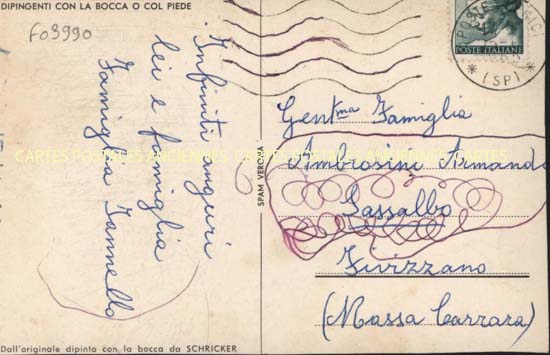 DIPINGENTI CON LA BOCCA O COL PIEDE
F03990
Infiniti auguri
lei e famiglia
Famiglia Iannello
Dall'originale dipinto con la bocca da SCHRICKER
SPAM VERONA
POSTE ITALIANE
POSTE
(SP)
Gent.ma Famiglia
Ambrosini Armando
Sassalbo
Fivizzano
(Massa Carrara)
CARTES POSTALES ANCIENNES